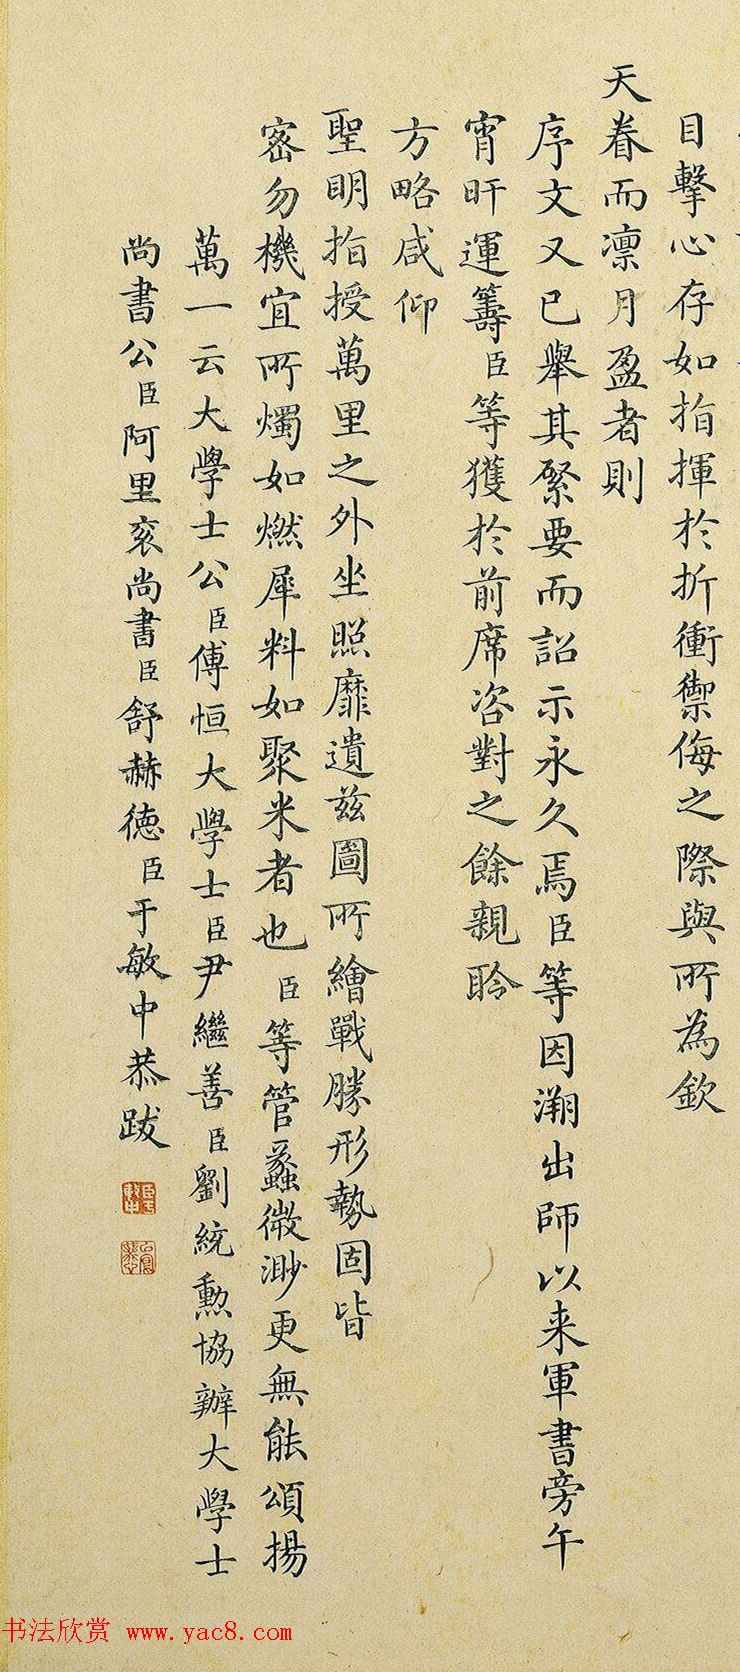 目擊心存如指揮於折衝禦侮之際與所為欽
天眷而凛月盈者則
序文又已舉其綮要而詔示永久焉臣等因溯出師以来軍書旁午
宵旰運籌臣等獲於前席咨對之餘親聆
方略咸仰
聖明指授萬里之外坐照靡遺茲圖所繪戰勝形勢固皆
密勿機宜所燭如燃犀料如聚米者也臣等管蠡微渺更無能頌揚
萬一云大學士公臣傅恒大學士臣尹繼善臣劉統勳協辦大學士
尚書公臣阿里衮尚書臣舒赫德臣于敏中恭跋
书法欣赏 www.yac8.com